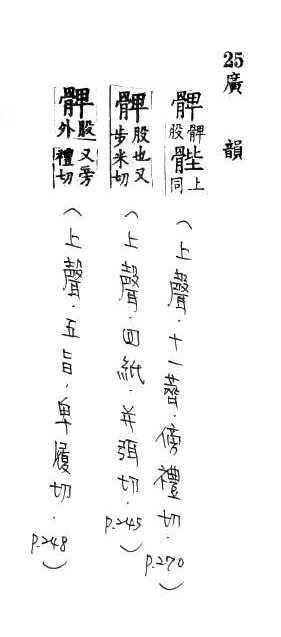 25廣韻
髀髀股䯗上同（上聲．十一薺．傍禮切．p.270）
髀股也又步米切（上聲．四紙．并弭切．p.245）
髀股外又旁禮切（上聲．五旨．卑履切．p.248）